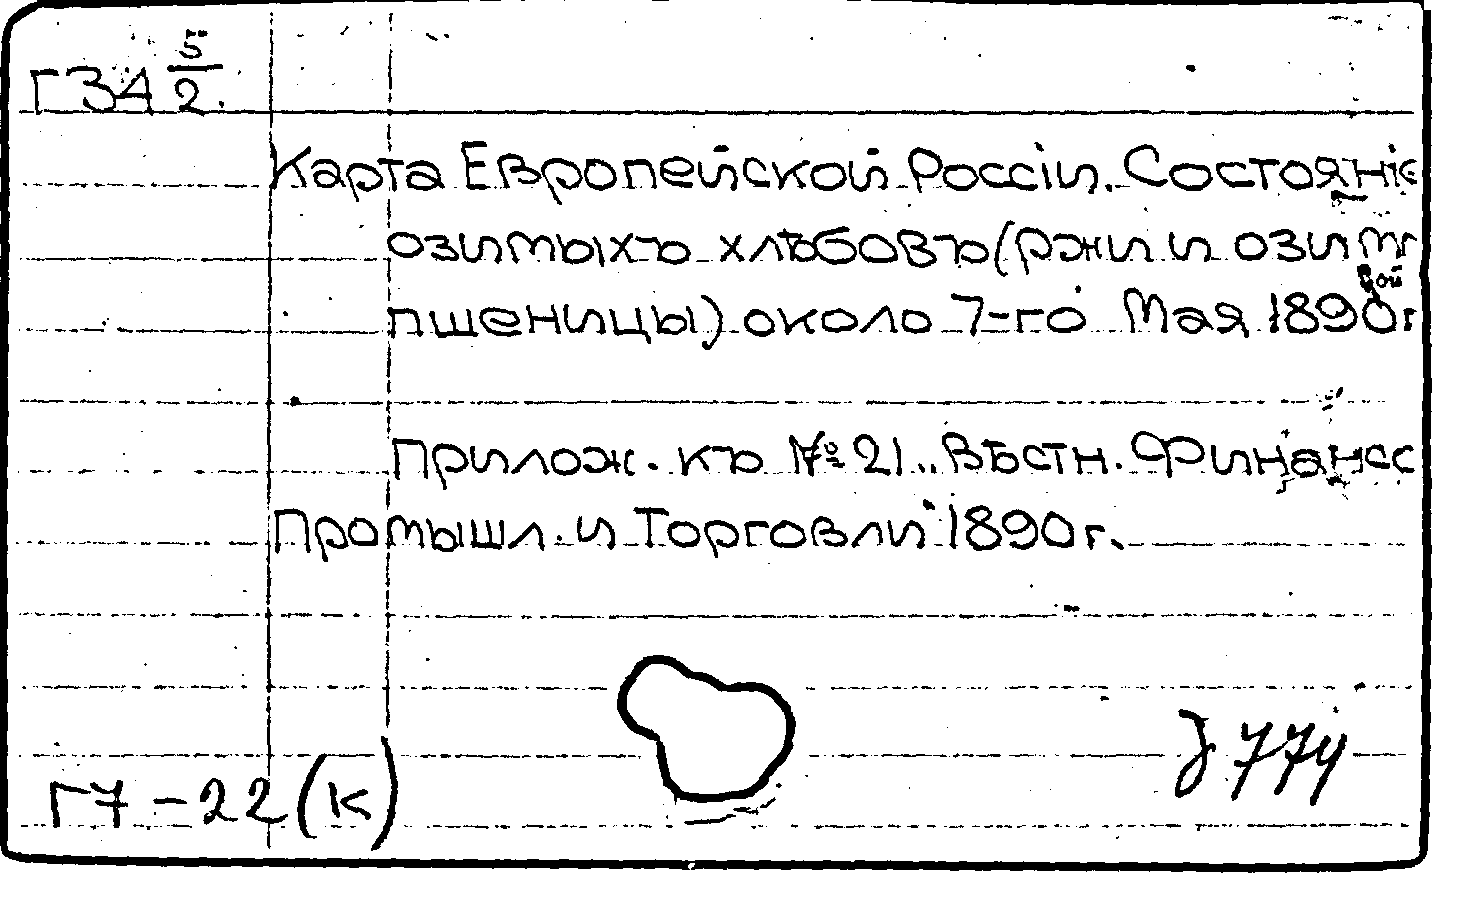 Г34 5/2.
Карта Европейской Россіи. Состояніе
озимыхъ хлѣбовъ (ржи и озим
вой
пшеницы) около 7-го Мая 1890г
Прилож. къ №21 „Вѣстн. Финанс
Промышл. и Торговли" 1890 г.
774
Г7-22 (К)